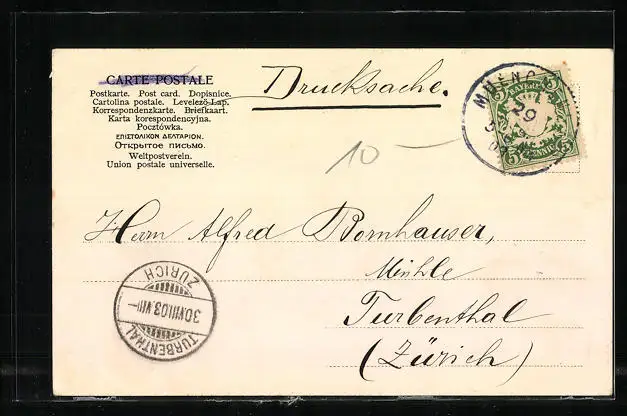 CARTE POSTALE
Postkarte. Post card. Dopisnice.
Cartolina postale. Levelező-Lap.
Korrespondenzkarte. Briefkaart.
Karta korespondencyjna.
Pocztówka.
ΕΠΙΣΤΟΛΙΚΟΝ ΔΕΛΤΑΡΙΟΝ.
Открытое письмо.
Weltpostverein.
Union postale universelle.
Drucksache.
BAYERN
5 PFENNIG 5
10
Herrn Alfred Bornhauser,
Mühle
Turbenthal
(Zürich)
TURBENTHAL
30.VIII.03.VIII—
ZÜRICH